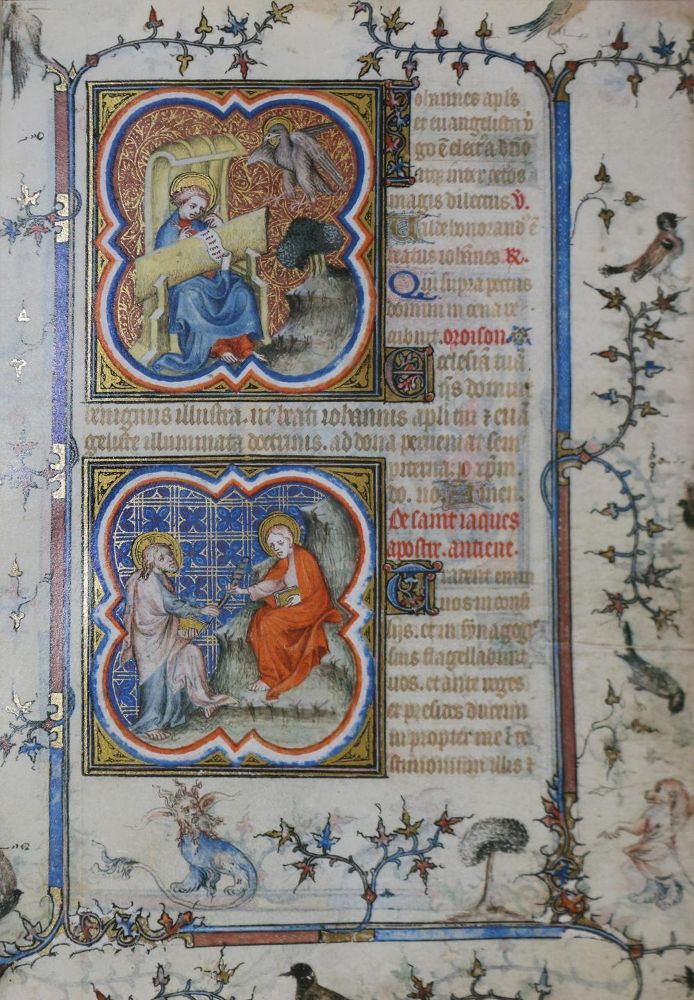 Iohannes apls
et euangelista v̄
go ē elect⁹ a dño
atq; inter cetos
magis dilectus. V̄.
Valde honorand⁹ ē
beatus iohñes. R.
Qui supra pectus
domini in cena re
cubuit. oroison.
Ecclesiā tuā
q̄s domine
benignus illustra. ut beati iohannis apli tui ⁊ euā
geliste illuminata doctrinis. ad dona perueniat sem
piterna. p xp̄m
do. no. Amen.
De saint iaques
apostre. antiene.
Tradent enim
uos in consi
liis. et in synagogis
suis flagellabunt
uos. et ante reges
et presides ducemi
ni propter me ī te
stimonium illis ⁊